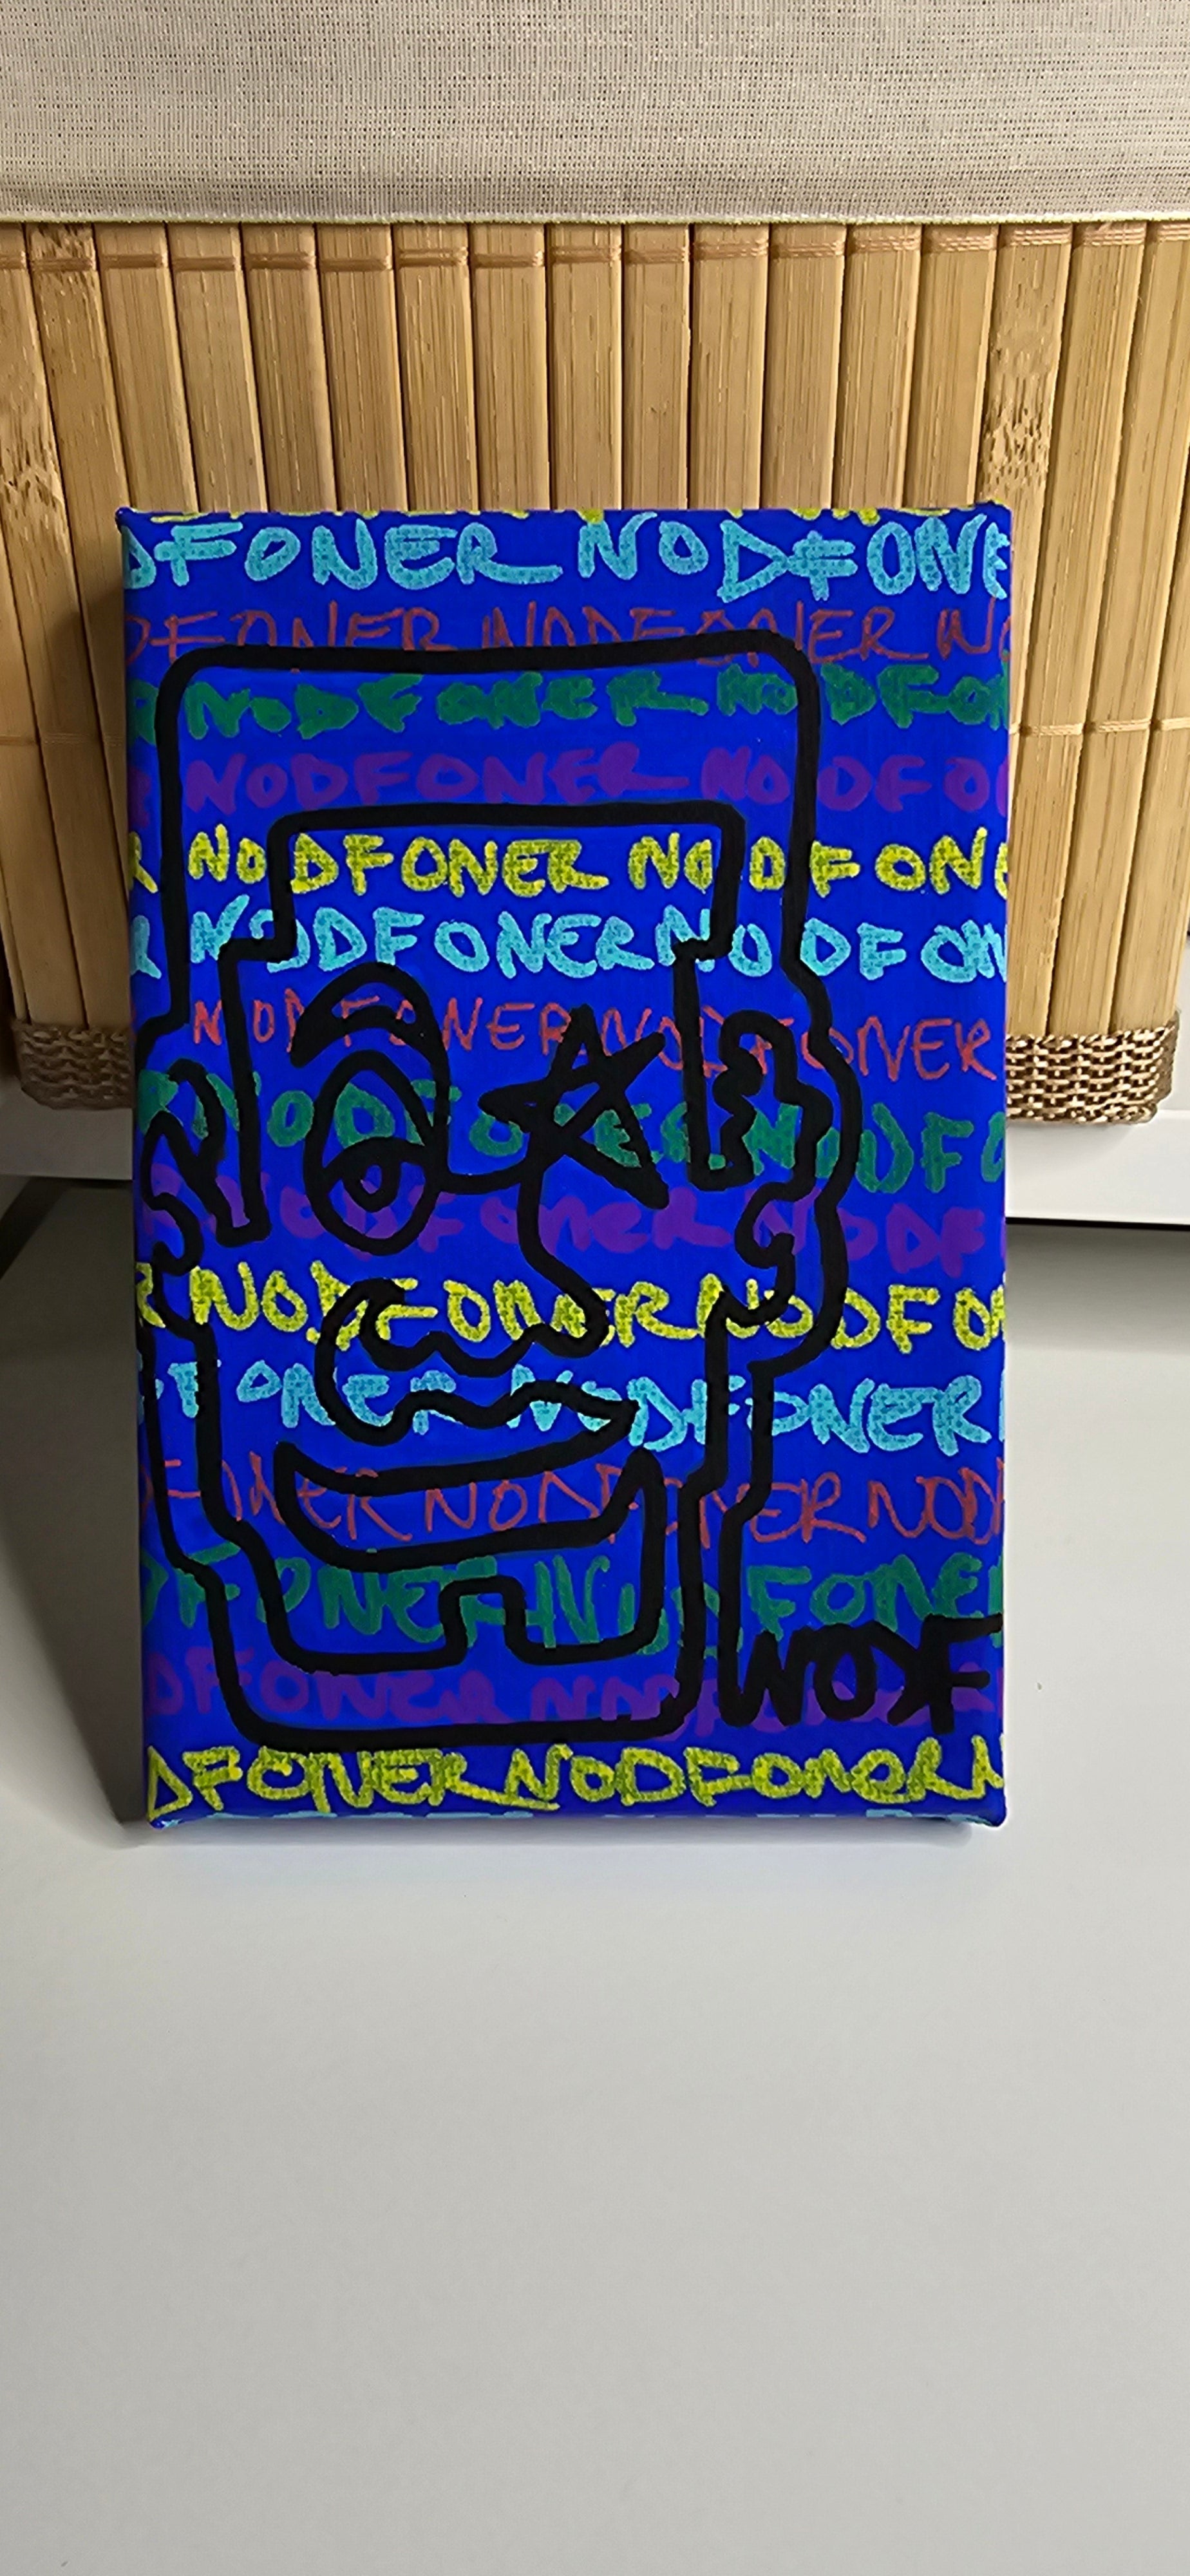 DFONER NODFONE
DFONER NODFONER NO
NODFONER NODFO
NODFONER NODFO
R NODFONER NODFONE
R NODFONER NODFON
NODFONER NODFONER
NODFONER NODFO
NODFONER NODF
R NODFONER NODFO
FONER NODFONER
FONER NODFONER NOD
DFONER NODFONE
NODF
DFONER NODFONER
DFONER NODFONER N